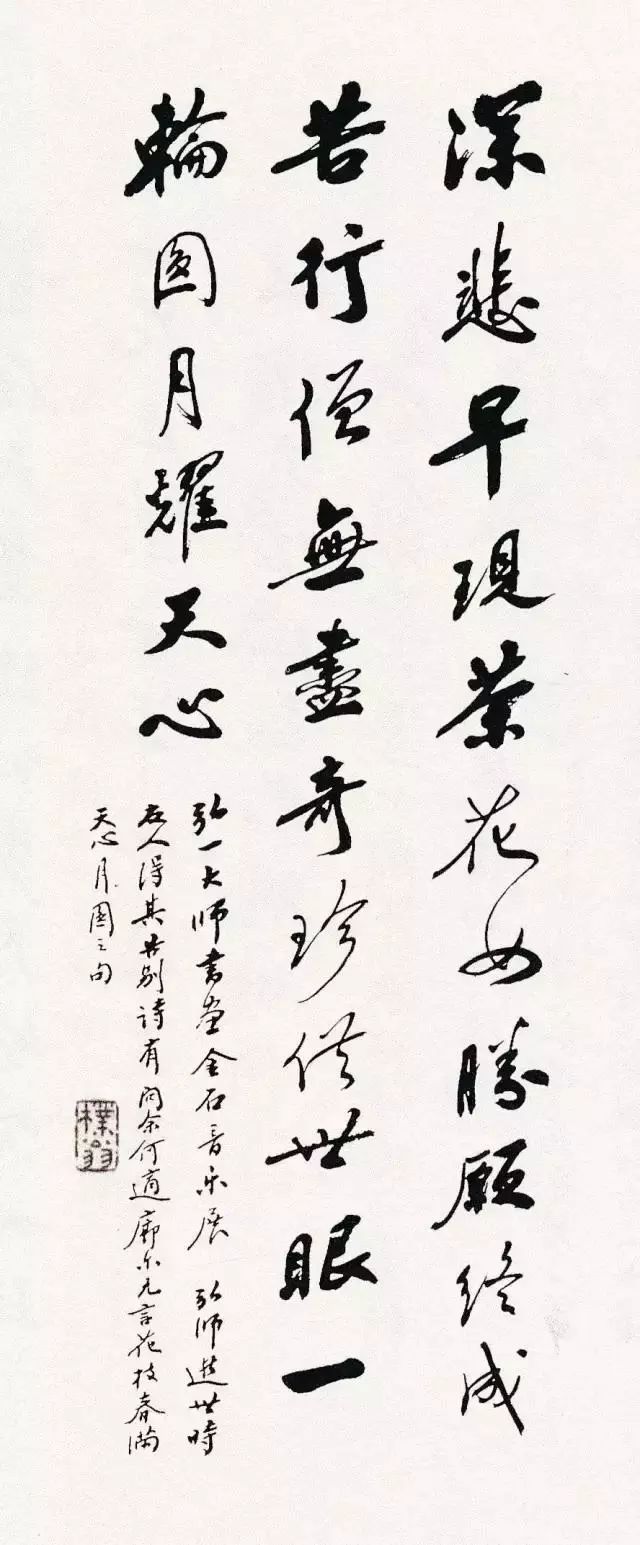 深悲早現茶花女勝願終成
苦行僧無盡奇珍供世眼一
輪圓月耀天心
弘一大師書畫金石音乐展 弘師逝世時
友人得其告別詩有問余何適廓尔亡言花枝春滿
天心月圓之句
樸翁